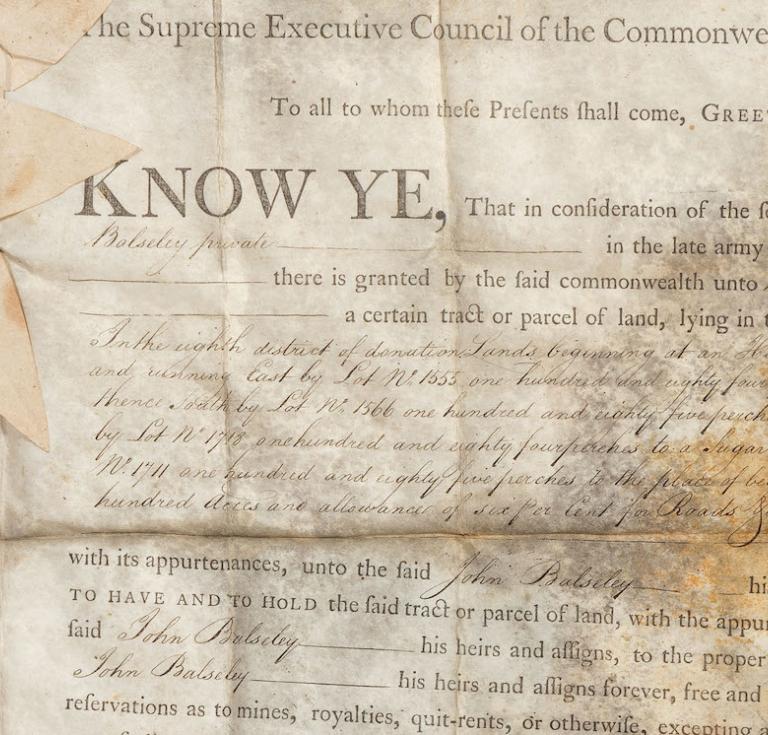 The Supreme Executive Council of the Commonwe
To all to whom theſe Preſents ſhall come, GREE
KNOW YE, That in conſideration of the ſ
Balseley private in the late army
there is granted by the ſaid commonwealth unto
a certain tract or parcel of land, lying in t
In the eighth district of donation Lands beginning at an
and running East by Lot No. 1555 one hundred and eighty four
thence South by Lot No. 1566 one hundred and eighty five perch
by Lot No 1713 one hundred and eighty four perches to a Sugar
No. 1711 one hundred and eighty five perches to the place of be
hundred Acres and allowance of six per Cent for Roads &
with its appurtenances, unto the ſaid John Balseley hi
TO HAVE AND TO HOLD the ſaid tract or parcel of land, with the appu
ſaid John Balseley his heirs and aſſigns, to the proper
John Balseley his heirs and aſſigns forever, free and
reſervations as to mines, royalties, quit-rents, or otherwiſe, excepting a